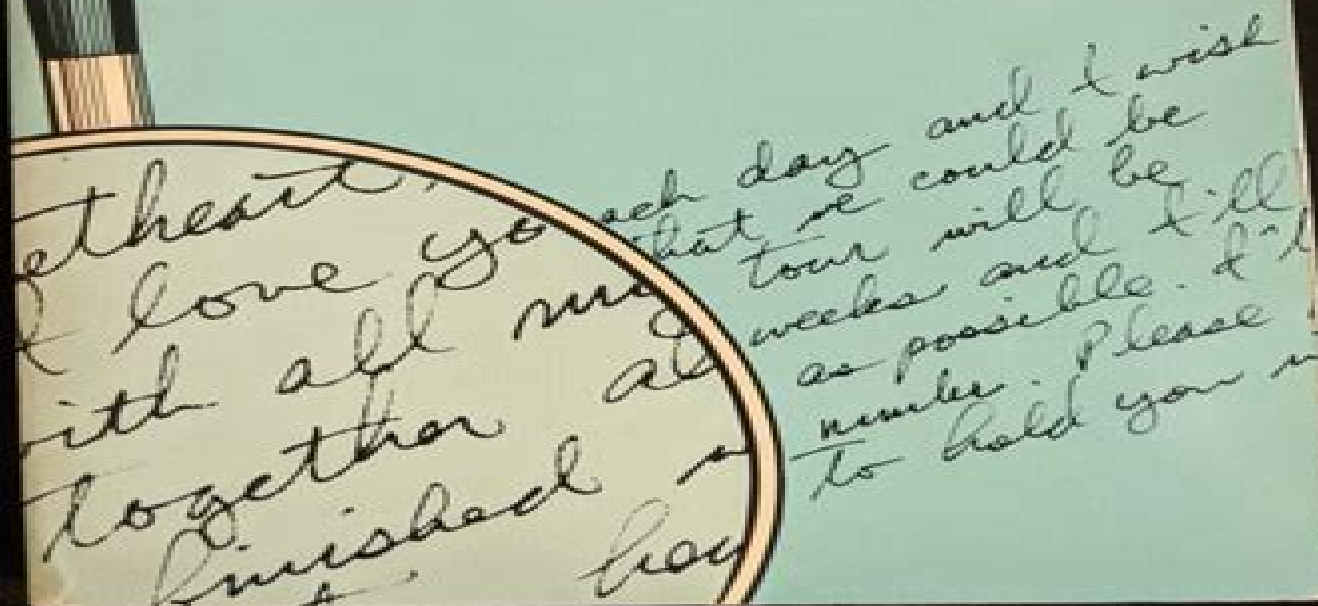 etheart,
I love yo
with all my
together al
finished
ach day and I wish
that we could be
tour will be
weeks and I'll
as possible. I'l
number. Please
to hold you